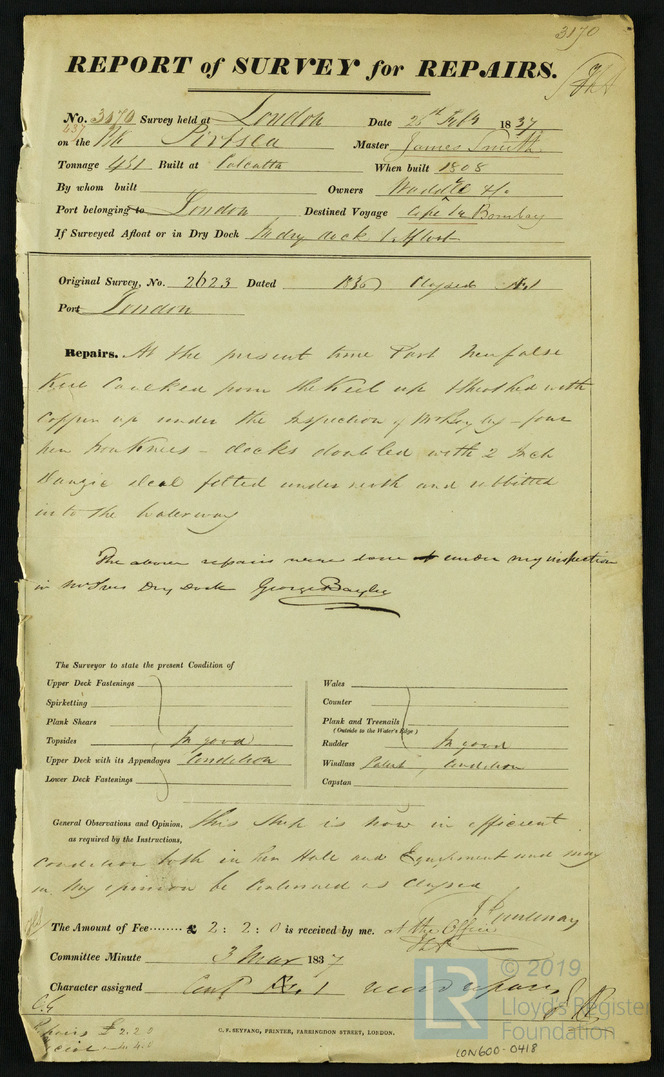 3170
REPORT of SURVEY for REPAIRS.
No. 3170 Survey held at London Date 28th Feby 1837
437 on the Portsea Master James Smith
Tonnage 451 Built at Calcutta When built 1808
By whom built Owners Waddell &c
Port belonging to London Destined Voyage Cape & Bombay
If Surveyed Afloat or in Dry Dock In dry dock & Afloat
Original Survey, No. 2623 Dated 1836 Classed Æ1
Port London
Repairs. At the present time Part New false
Keel Caulked from the Keel up & Sheathed with
Copper up under the Inspection of Mr Bayley - four
new Iron Knees - decks doubled with 2 Inch
Danzic deal felted underneath and rabbitted
into the waterway
The above repairs were done under my inspection
in Dry Dock George Bayley
The Surveyor to state the present Condition of
Upper Deck Fastenings Wales
Spirketting Counter
Plank Shears Plank and Treenails
(Outside to the Water's Edge)
Topsides In good Rudder In good
Upper Deck with its Appendages Condition Windlass Patent Condition
Lower Deck Fastenings Capstan
General Observations and Opinion, This Ship is now in efficient
as required by the Instructions,
condition both in her Hull and Equipment and may
in my opinion be Continued as Classed
J Courtenay
The Amount of Fee ........ £ 2 : 2 : 0 is received by me. at the Office
Committee Minute 3 Mar 1837
Character assigned Contd Æ1
C. F. SEYFANG, PRINTER, FARRINGDON STREET, LONDON.
£ 2.2.0
LON600-0418
© 2019
LR Lloyd's Register
Foundation